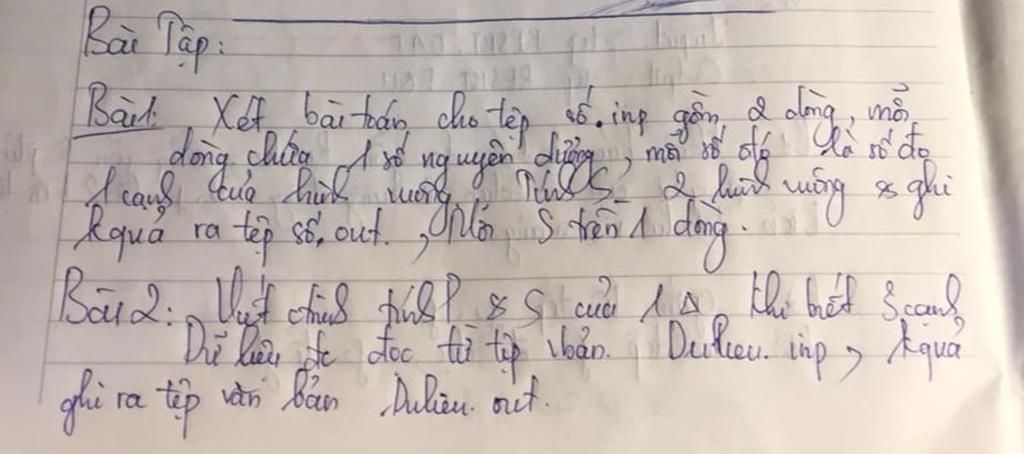 Bài Tập:
Bài1: Xét bài toán cho tệp số.inp gồm 2 dòng, mỗi
dòng chứa 1 số nguyên dương, mỗi số đó là số đo
1 cạnh của hình vuông. Tính S 2 hình vuông & ghi
kquả ra tệp số.out., Mỗi S trên 1 dòng.
Bài 2: Viết ctrình tính P & S của 1 Δ khi biết 3 cạnh
Dữ liệu đc đọc từ tệp vbản. Dulieu.inp, kquả
ghi ra tệp văn bản Dulieu.out.